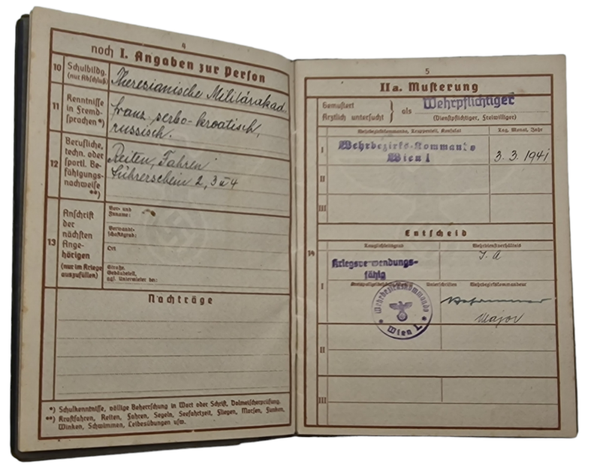 4
noch I. Angaben zur Person
10 Schulbildg. (nur Abschluß)
Theresianische Militärakad.
11 Kenntnisse in Fremdsprachen *)
franz. serbo-kroatisch,
russisch.
12 Berufliche, techn. oder sportl. Befähigungsnachweise **)
Reiten, Fahren
Führerschein 2, 3 u 4
13 Anschrift der nächsten Angehörigen (nur im Kriege auszufüllen)
Vor- und Zuname:
Ort
Straße,
Nachträge
*) Schulkenntnisse, völlige Beherrschung in Wort oder Schrift, Dolmetscherprüfung.
**) Kraftfahren, Reiten, Fahren, Segeln, Seefahrtzeit, Fliegen, Morsen, Funken,
Winken, Schwimmen, Leibesübungen usw.
5
II a. Musterung
Gemustert
Ärztlich untersucht
als Wehrpflichtiger
(Dienstpflichtiger, Freiwilliger)
Tag, Monat, Jahr
I Wehrbezirks-Kommando
Wien I
3. 3. 1941
II
III
Entscheid
14
Tauglichkeitsgrad
Wehrdienstverhältnis
Kriegsverwendungs-
fähig
I. A
I
Wehrbezirkskommando
Wien I.
Major
II
III